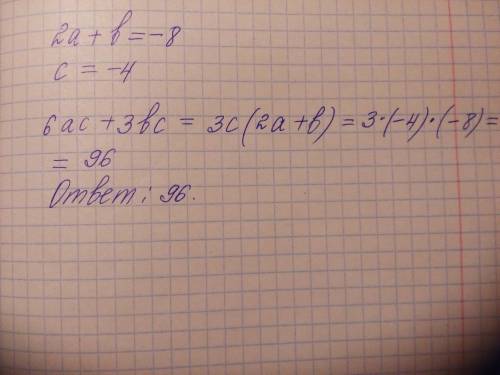 2a + b = -8
c = -4
6ac + 3bc = 3c(2a+b) = 3·(-4)·(-8) =
= 96
Ответ: 96.